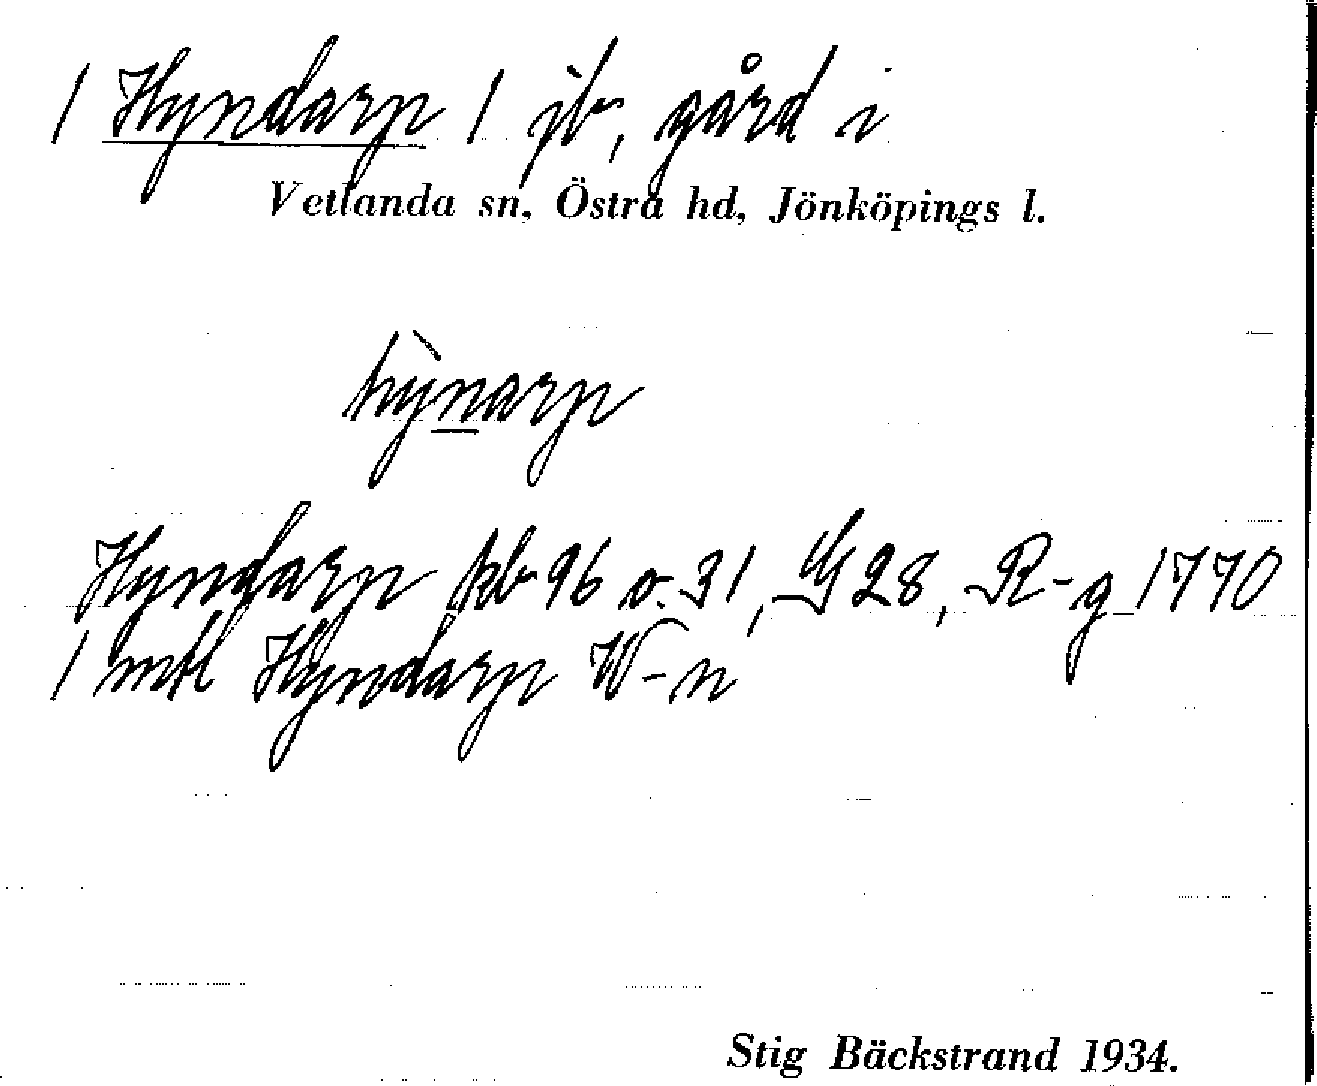 1 Hyndarp 1 jb, gård i
Vetlanda sn, Östra hd, Jönköpings l.
hỳnarp
Hyndarp kb 96 o. 31, Lg 28, R-g 1770
1 mtl Hyndarp W-n
Stig Bäckstrand 1934.